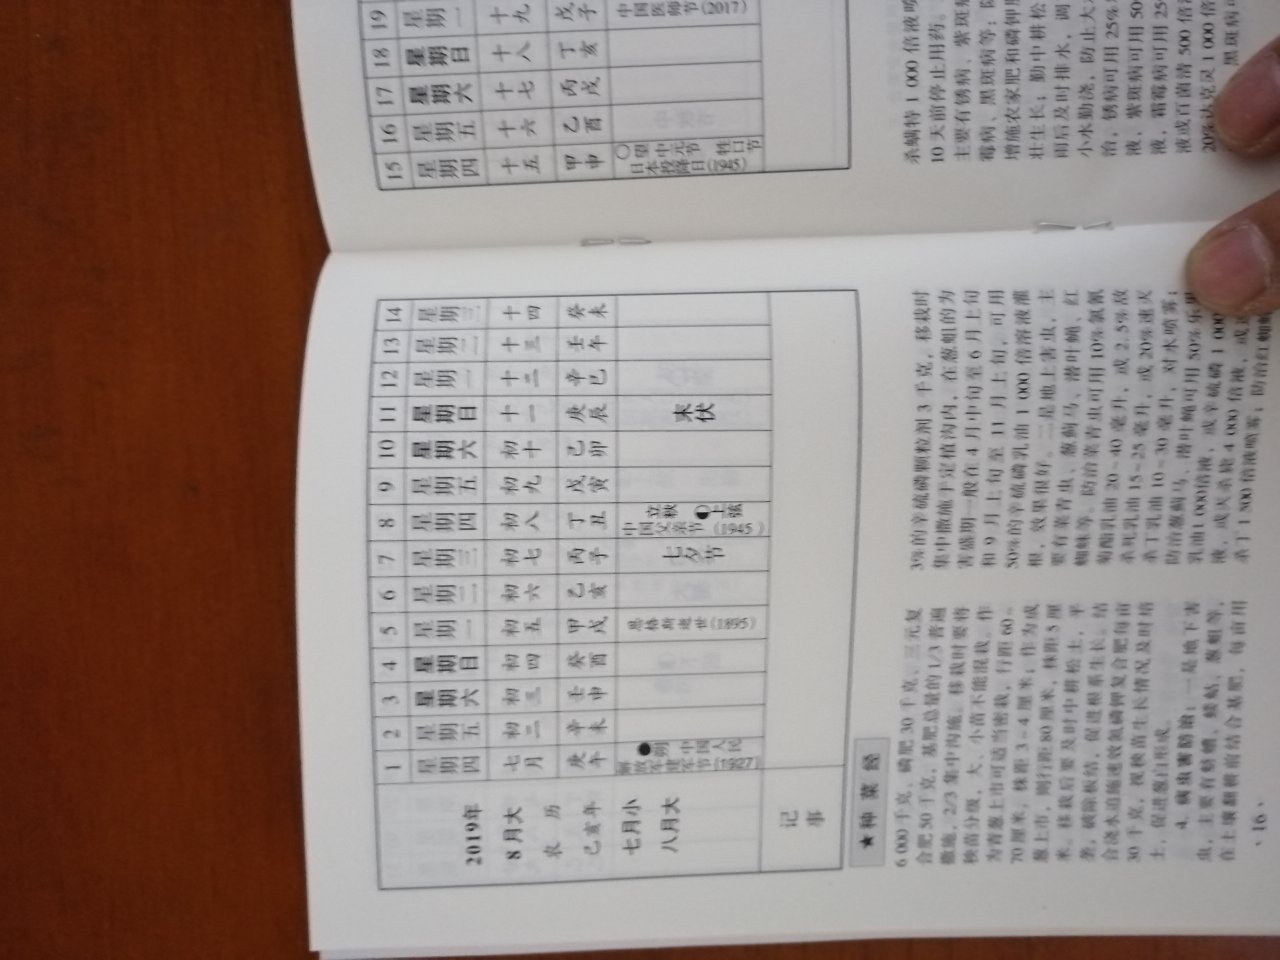 2019年
8月大
农历
己亥年
七月小
八月大
1 2 3 4 5 6 7 8 9 10 11 12 13 14
星期四 星期五 星期六 星期日 星期一 星期二 星期三 星期四 星期五 星期六 星期日 星期一 星期二 星期三
七月 初二 初三 初四 初五 初六 初七 初八 初九 初十 十一 十二 十三 十四
庚午 辛未 壬申 癸酉 甲戌 乙亥 丙子 丁丑 戊寅 己卯 庚辰 辛巳 壬午 癸未
●朔 中国人民解放军建军节(1927)
恩格斯逝世(1895)
七夕节
立秋 上弦
中国父亲节(1945)
末伏
记事
★种菜经
6 000千克，磷肥30千克、三元复
合肥50千克，基肥总量的1/3普遍
撒施，2/3集中沟施。移栽时要将
秧苗分级，大、小苗不能混栽。作
为青葱上市可适当密栽，行距60~
70厘米，株距3~4厘米；作为成
葱上市，则行距80厘米，株距5厘
米。移栽后要及时中耕松土，平
垄，破除板结，促进根系生长。结
合浇水追施速效氮磷钾复合肥每亩
30千克，视秧苗生长情况及时培
土，促进葱白形成。
4. 病虫害防治：一是地下害
虫，主要有蛴螬、蝼蛄、葱蛆等，
在土壤翻耕前结合基肥，每亩用
3%的辛硫磷颗粒剂3千克，移栽时
集中撒施于定植沟内，在葱蛆的为
害盛期一般在4月中旬至6月上旬
和9月上旬至11月上旬，可用
50%的辛硫磷乳油1 000倍溶液灌
根，效果很好。二是地上害虫，主
要有菜青虫、葱蓟马、潜叶蝇、红
蜘蛛等。防治菜青虫可用10%氯氰
菊酯乳油20~40毫升，或2.5%敌
杀死乳油15~25毫升，或20%速灭
杀丁乳油10~30毫升，对水喷雾；
防治葱蓟马、潜叶蝇可用50%乐果
乳油1 000倍液，或辛硫磷1 000
液，或灭杀毙4 000倍液，或
杀丁1 500倍液喷雾；防治红蜘蛛
·16·
15 16 17 18 19
星期四 星期五 星期六 星期日 星期一
十五 十六 十七 十八 十九
甲申 乙酉 丙戌 丁亥 戊子
○望 中元节 牲口节
日本投降日(1945)
中国医师节(2017)
杀螨特1 000倍液喷
10天前停止用药。
主要有锈病、紫斑
霉病、黑斑病等；防
增施农家肥和磷钾肥
壮生长；勤中耕松
雨后及时排水，调
小水勤浇，防止大
治，锈病可用25%
液，紫斑病可用50
液，霜霉病可用25
液或百菌清500倍液
20%达克灵1 000倍
黑斑病可